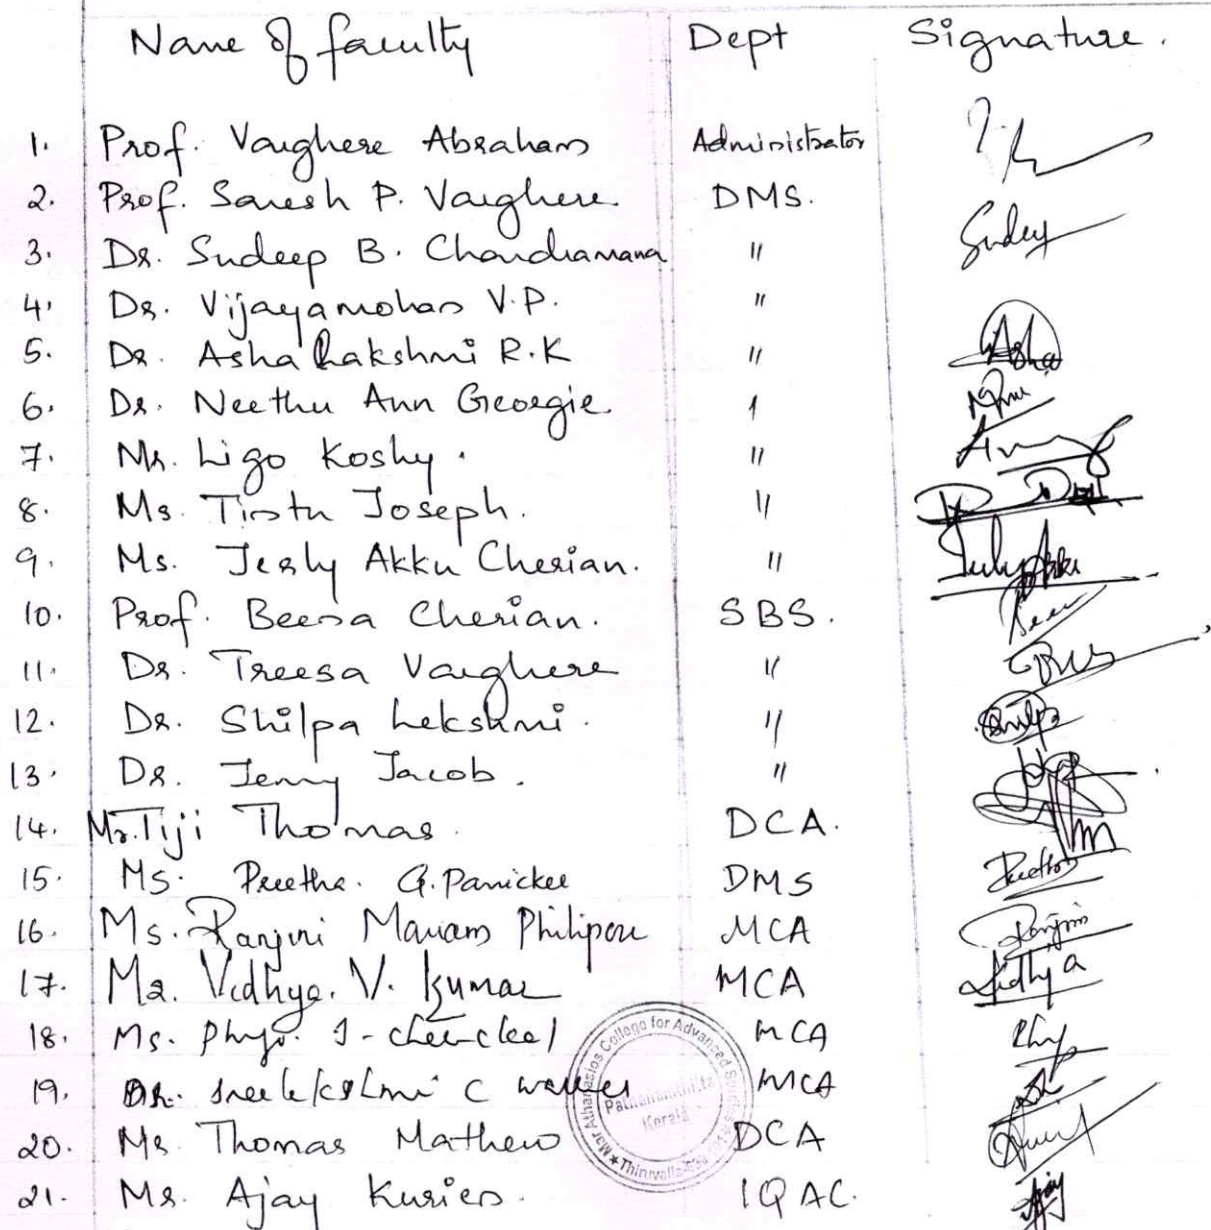 Name of faculty Dept Signature.
1. Prof. Varghese Abraham Administrator
2. Prof. Saresh P. Varghese. DMS.
3. Dr. Sudeep B. Chandramana "
4. Dr. Vijayamohan V.P. "
5. Dr. Asha Lakshmi R.K " Asha
6. Dr. Neethu Ann Georgie. "
7. Mr. Ligo Koshy. "
8. Ms. Tintu Joseph. "
9. Ms. Jerly Akku Cherian. " Jerly Akku
10. Prof. Beena Cherian. SBS.
11. Dr. Treesa Varghese "
12. Dr. Shilpa Lekshmi. " Shilpa
13. Dr. Jenny Jacob. "
14. Mr. Tiji Thomas. DCA.
15. Ms. Preetha. G. Panicker DMS Preetha
16. Ms. Ranjini Mariam Philipose MCA Ranjini
17. Ms. Vidhya. V. Kumar MCA Vidhya
18. Ms. MCA
19. Dr. Sreelekshmi C MCA
20. Mr Thomas Mathew DCA
21. Mr. Ajay Kurien. IQAC. Ajay
Mar Athanasios College for Advanced Studies
Pathanamthitta
Kerala
Thiruvalla